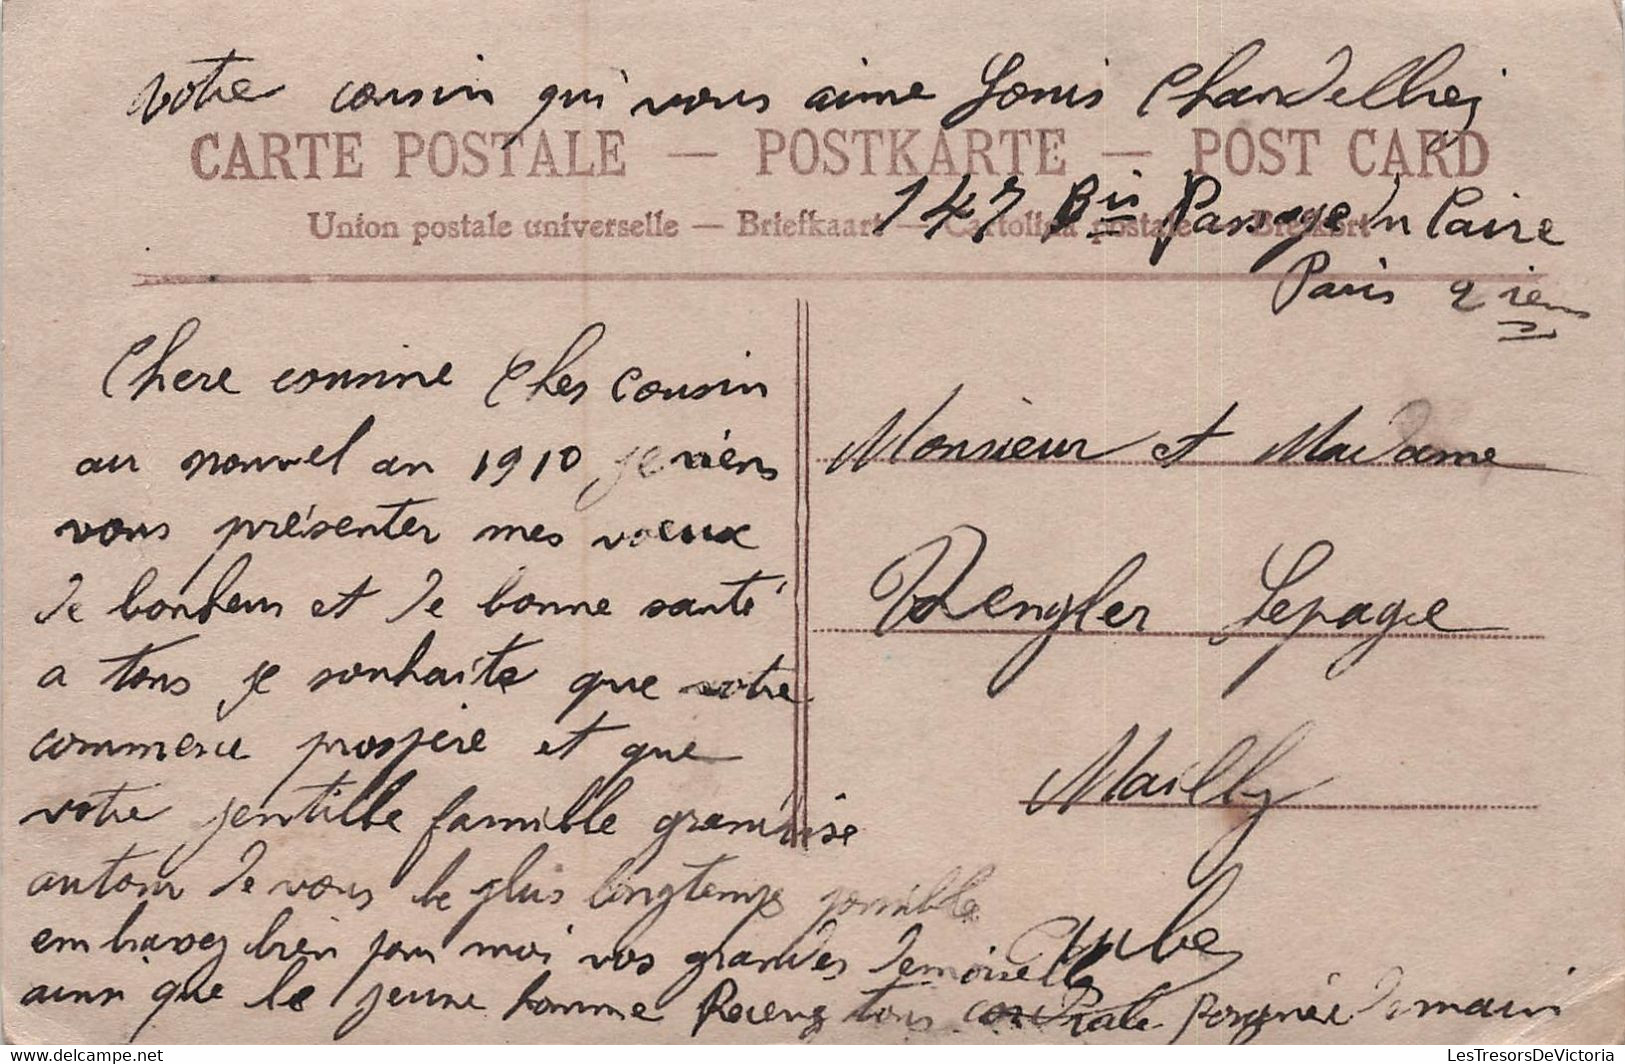 votre cousin qui vous aime Louis Chardellier
CARTE POSTALE — POSTKARTE — POST CARD
147 Bis Passage du Caire
Union postale universelle — Briefkaart — Cartolina postale — Brefkort
Paris 2 iem
Chere cousine Cher Cousin
au nouvel an 1910 je viens
vous présenter mes voeux
de bonheur et de bonne santé
a tous je souhaite que votre
commerce prospère et que
votre jentille famille grandise
autour de vous le plus longtemps possible
embrassez bien pour moi vos grandes demoiselle
ainsi que le jeune homme Recevez tous cordiale poignée de main
Monsieur et Madame
Rengler Lepage
Mailly
Aube
LesTresorsDeVictoria